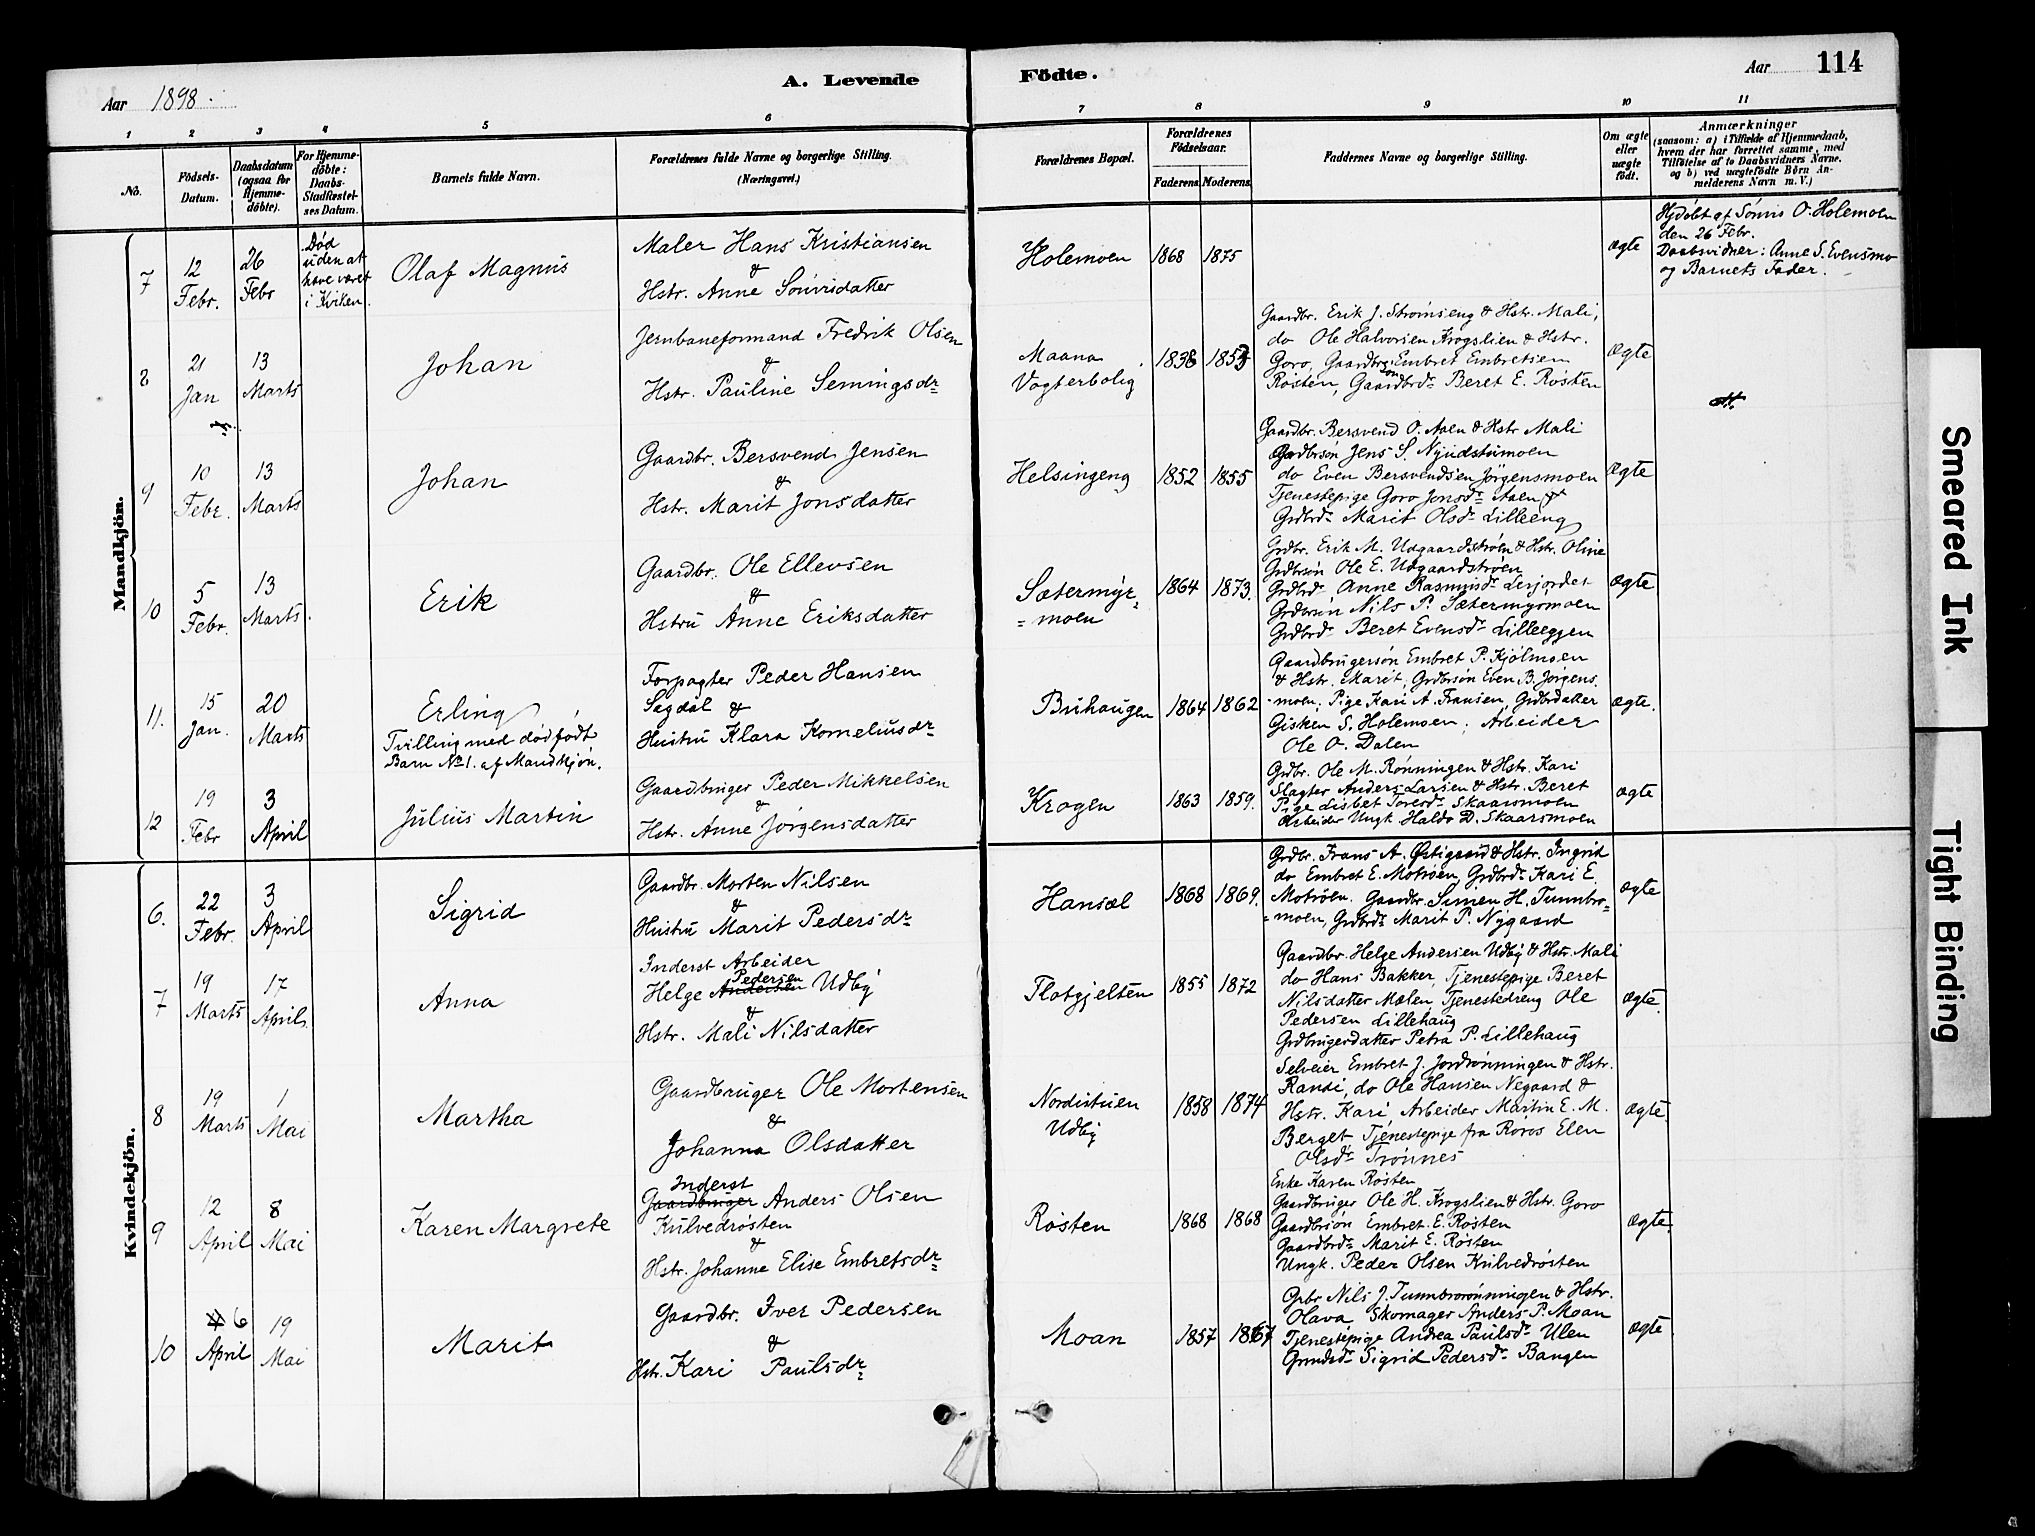 A. Levende Födte.
Aar 1898.
Aar 114
1 2 3 4 5 6 7 8 9 10 11
No.
Födsels-Datum.
Daabsdatum (ogsaa for Hjemme-döbte).
For Hjemme-döbte: Daabs-Stadfæstel-ses Datum.
Barnets fulde Navn.
Forældrenes fulde Navne og borgerlige Stilling. (Næringsvei.)
Forældrenes Bopæl.
Forældrenes Födselsaar.
Faderens. Moderens.
Faddernes Navne og borgerlige Stilling.
Om ægte eller uægte födt.
Anmærkninger
(saasom: a) i Tilfælde af Hjemmedaab,
hvem der har forrettet samme, med
Tilföielse af to Daabsvidners Navne.
og b) ved uægtefödte Börn An-
melderens Navn m. V.)
Mandkjön.
7
12 Febr.
26 Febr
Död
uden at
have været
i Kirken.
Olaf Magnus
Maler Hans Kristiansen
&
Hstr. Anne Sönvisdatter
Holemoen
1868 1875
ægte
Hjdöbt af Sönvis O. Holemoen
den 26 Febr.
Daabsvidner: Anne S. Evensmo
og Barnets Fader.
8
21 Jan
13 Marts
Johan
Jernbaneformand Fredrik Olsen
&
Hstr. Pauline Semingsdr
Maana
Vogterbolig
1838 1853
Gaardbr. Erik J. Strömseng & Hstr. Mali,
do Ole Halvorsen Krogslien & Hstr.
Goro, Gaardbrsön Embret Embretsen
Rösten, Gaardbrdr Beret E. Rösten
Ægte
9
10 Febr.
13 Marts
Johan
Gaardbr. Bersvend Jensen
&
Hstr. Marit Jonsdatter
Helsingeng
1852 1855
Gaardbr. Bersvend O. Aaen & Hstr Mali
Gardbrsön Jens S. Nyudstumoen
do Even Bersvendsen Jörgensmoen
Tjenestepige Goro Jonsdr Aaen &
Grdbrdr Marit Olsdr Lilleeng
Ægte
10
5 Febr.
13 Marts.
Erik
Gaardbr. Ole Ellevsen
&
Hstru Anne Eriksdatter
Sætermyr=
=moen
1864 1873.
Grdbr. Erik M. Udgaardströen & Hstr. Oline
Grdbrsön Ole E. Udgaardströen
Grdbrdr Anne Rasmusdr Lesjördet
Grdbrsön Nils P. Sætermyrmoen
Grdbrdr Beret Evensdr Lilleeggen
ægte
11.
15 Jan.
20 Marts
Erling
Tvilling med dödfödt
Barn No 1. af Mandkjön.
Forpagter Peder Hansen
Sagdal &
Hustru Klara Korneliusdr
Buhaugen
1864 1862
Gaardbrugersön Embret P. Kjölmoen
& Hstr. Marit, Grdbrsön Even B. Jörgens.
-moen, Pige Kari A. Fransen, Grdbrdatter
Gisken S. Holemoen; Arbeider
Ole O. Dalen
ægte.
12
19 Febr
3 April
Julius Martin
Gaardbruger Peder Mikkelsen
&
Hstr. Anne Jörgensdatter
Krogen
1863 1859.
Grdbr. Ole M. Rönningen & Hstr. Kari
Slagter Anders Larsen & Hstr. Beret
Pige Lisbet Toresdr Skaarsmoen
Arbeider Ungk Haldo D. Skaarsmoen
ægte
Kvindekjön.
6.
22 Febr.
3 April
Sigrid
Gaardbr. Morten Nilsen
&
Hustru Marit Pedersdr
Hansæl
1868 1869.
Grdbr. Frans A. Östigaard & Hstr. Ingrid
do Embret E. Moröen, Grdbrdr Kari E.
Moröen. Gaardbr. Simen H. Tunnbro=
=moen, Grdbrdr Marit P. Nygaard
ægte
7
19 Marts
17 April.
Anna
Inderst Arbeider
Helge Andersen Pedersen Udby
&
Hstr. Mali Nilsdatter
Flatgjelten
1855 1872
Gaardbr. Helge Andersen Udby & Hstr. Mali
do Hans Bakker, Tjenestepige Beret
Nilsdatter Mælen, Tjenestedreng Ole
Pedersen Lillehaug
Grdbrugerdatter Petra P. Lillehaug
ægte.
8
19 Marts
1 Mai
Martha
Gaardbruger Ole Mortensen
&
Johanna Olsdatter
Nordistuen
Udby
1858 1874
Selveier Embret J. Jordrönningen & Hstr.
Randi, do Ole Hansen Negaard &
Hstr. Kari, Arbeider Martin E. M.
Berget, Tjenestepige fra Roros Elen
Olsdr Trönnes
ægte.
9
12 April
8 Mai
Karen Margrete
Inderst
Gaardbruger Anders Olsen
Kulvedrösten
&
Hstr. Johanne Elise Embretsdr
Rösten
1868 1868
Enke Karen Rösten
Gaardbruger Ole H. Krogslien & Hstr. Goro
Gaardbrsön Embret E. Rosten
Gaardbrdr Marit E. Rösten
Ungk. Peder Olsen Kulvedrösten
ægte.
10
6 April
19 Mai
Marit
Gaardbr. Iver Pedersen
&
Hstr. Kari Paulsdr
Moan
1857 1867
Grbr Nils J. Tunnbrorönningen & Hstr.
Olava, Skomager Anders P. Moan
Tjenestepige Andrea Paulsdr Ulen
Sigrid Pedersdr Bangen
ægte
Smeared Ink
Tight Binding